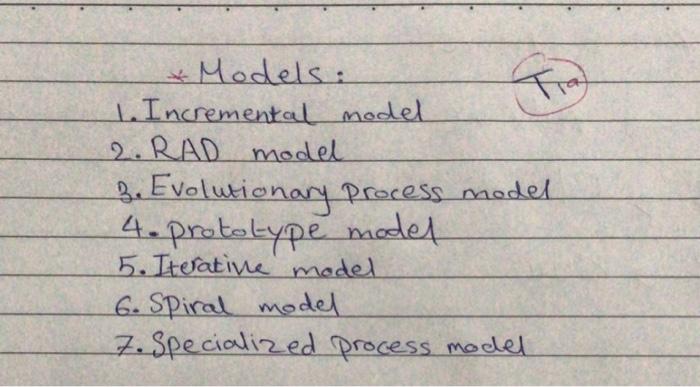 * Models:
T1a
1. Incremental model
2. RAD model
3. Evolutionary process model
4. prototype model
5. Iterative model
6. Spiral model
7. Specialized process model